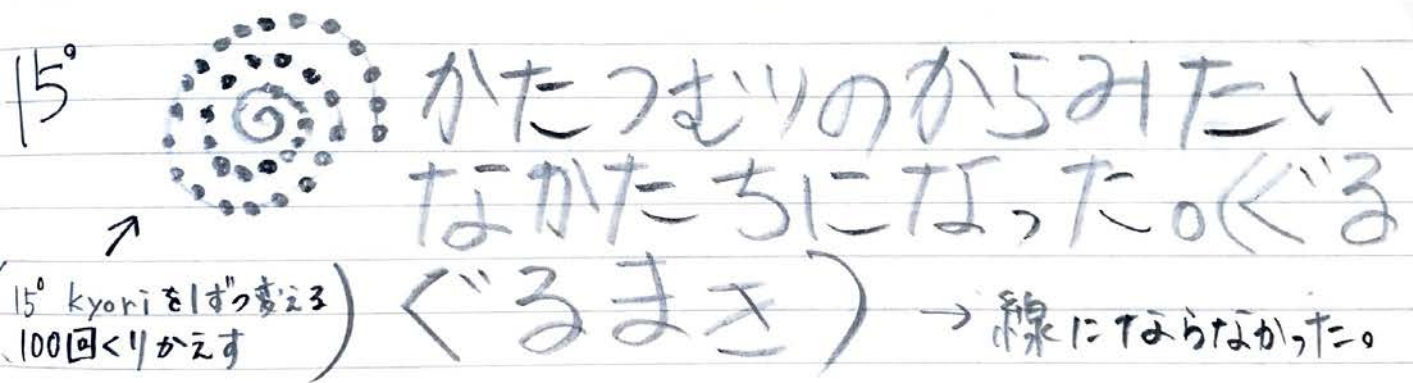 15°
かたつむりのからみたい
なかたちになった。(ぐる
ぐるまき) → 線にならなかった。
(15° kyoriを1ずつ変える
100回くりかえす)